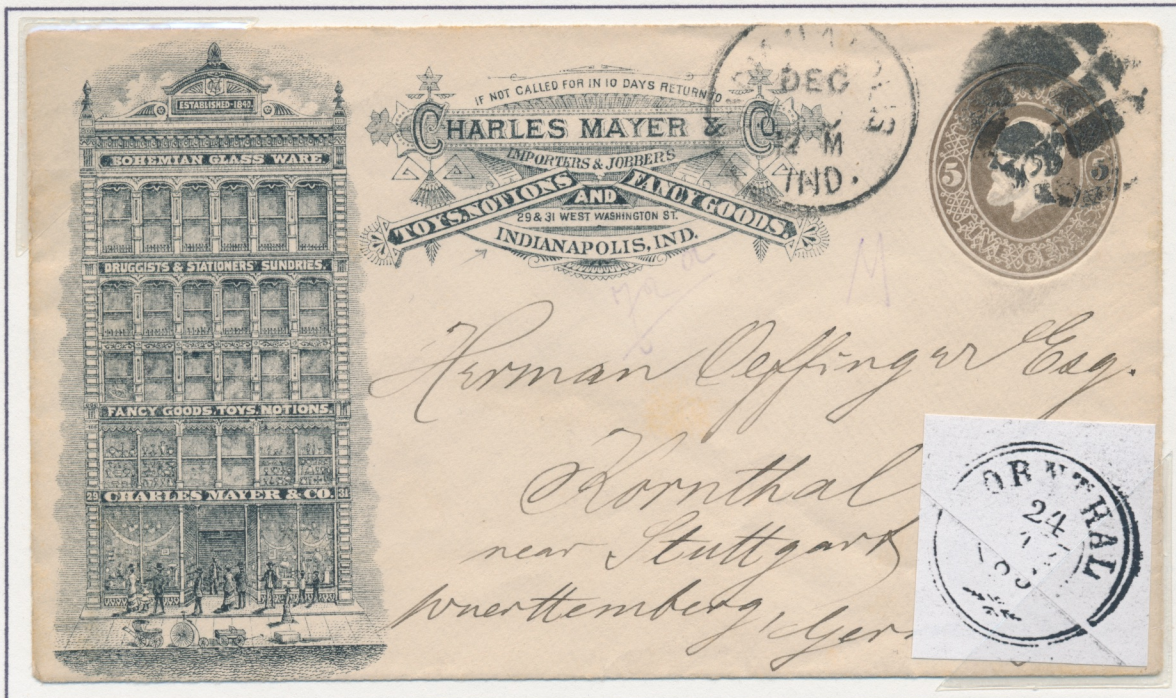 ESTABLISHED-1840.
BOHEMIAN GLASS WARE.
DRUGGISTS & STATIONERS' SUNDRIES.
FANCY GOODS, TOYS, NOTIONS.
29 CHARLES MAYER & CO. 31
IF NOT CALLED FOR IN 10 DAYS RETURN TO
CHARLES MAYER & CO.
IMPORTERS & JOBBERS
TOYS, NOTIONS AND FANCY GOODS.
29 & 31 WEST WASHINGTON ST.
INDIANAPOLIS, IND.
DEC
M
IND.
5 5
M
Herman Oeffinger Esq.
Kornthal
near Stuttgart
Wuerttemberg, Ger
ORNTHAL
24